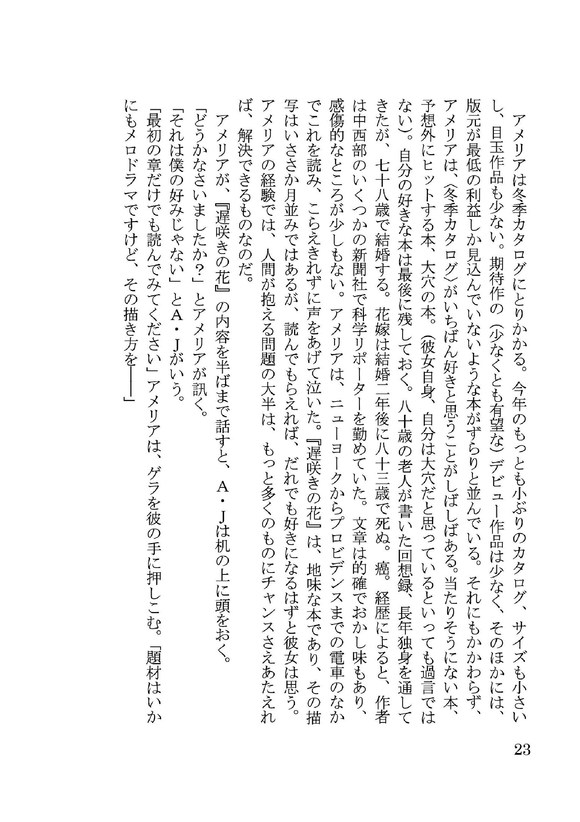 アメリアは冬季カタログにとりかかる。今年のもっとも小ぶりのカタログ、サイズも小さい
し、目玉作品も少ない。期待作の（少なくとも有望な）デビュー作品は少なく、そのほかには、
版元が最低の利益しか見込んでいないような本がずらりと並んでいる。それにもかかわらず、
アメリアは、〈冬季カタログ〉がいちばん好きと思うことがしばしばある。当たりそうにない本、
予想外にヒットする本、大穴の本。（彼女自身、自分は大穴だと思っているといっても過言では
ない）。自分の好きな本は最後に残しておく。八十歳の老人が書いた回想録、長年独身を通して
きたが、七十八歳で結婚する。花嫁は結婚二年後に八十三歳で死ぬ。癌。経歴によると、作者
は中西部のいくつかの新聞社で科学リポーターを勤めていた。文章は的確でおかし味もあり、
感傷的なところが少しもない。アメリアは、ニューヨークからプロビデンスまでの電車のなか
でこれを読み、こらえきれずに声をあげて泣いた。『遅咲きの花』は、地味な本であり、その描
写はいささか月並みではあるが、読んでもらえれば、だれでも好きになるはずと彼女は思う。
アメリアの経験では、人間が抱える問題の大半は、もっと多くのものにチャンスさえあたえれ
ば、解決できるものなのだ。
アメリアが、『遅咲きの花』の内容を半ばまで話すと、Ａ・Ｊは机の上に頭をおく。
「どうかなさいましたか？」とアメリアが訊く。
「それは僕の好みじゃない」とＡ・Ｊがいう。
「最初の章だけでも読んでみてください」アメリアは、ゲラを彼の手に押しこむ。「題材はいか
にもメロドラマですけど、その描き方を――」
23